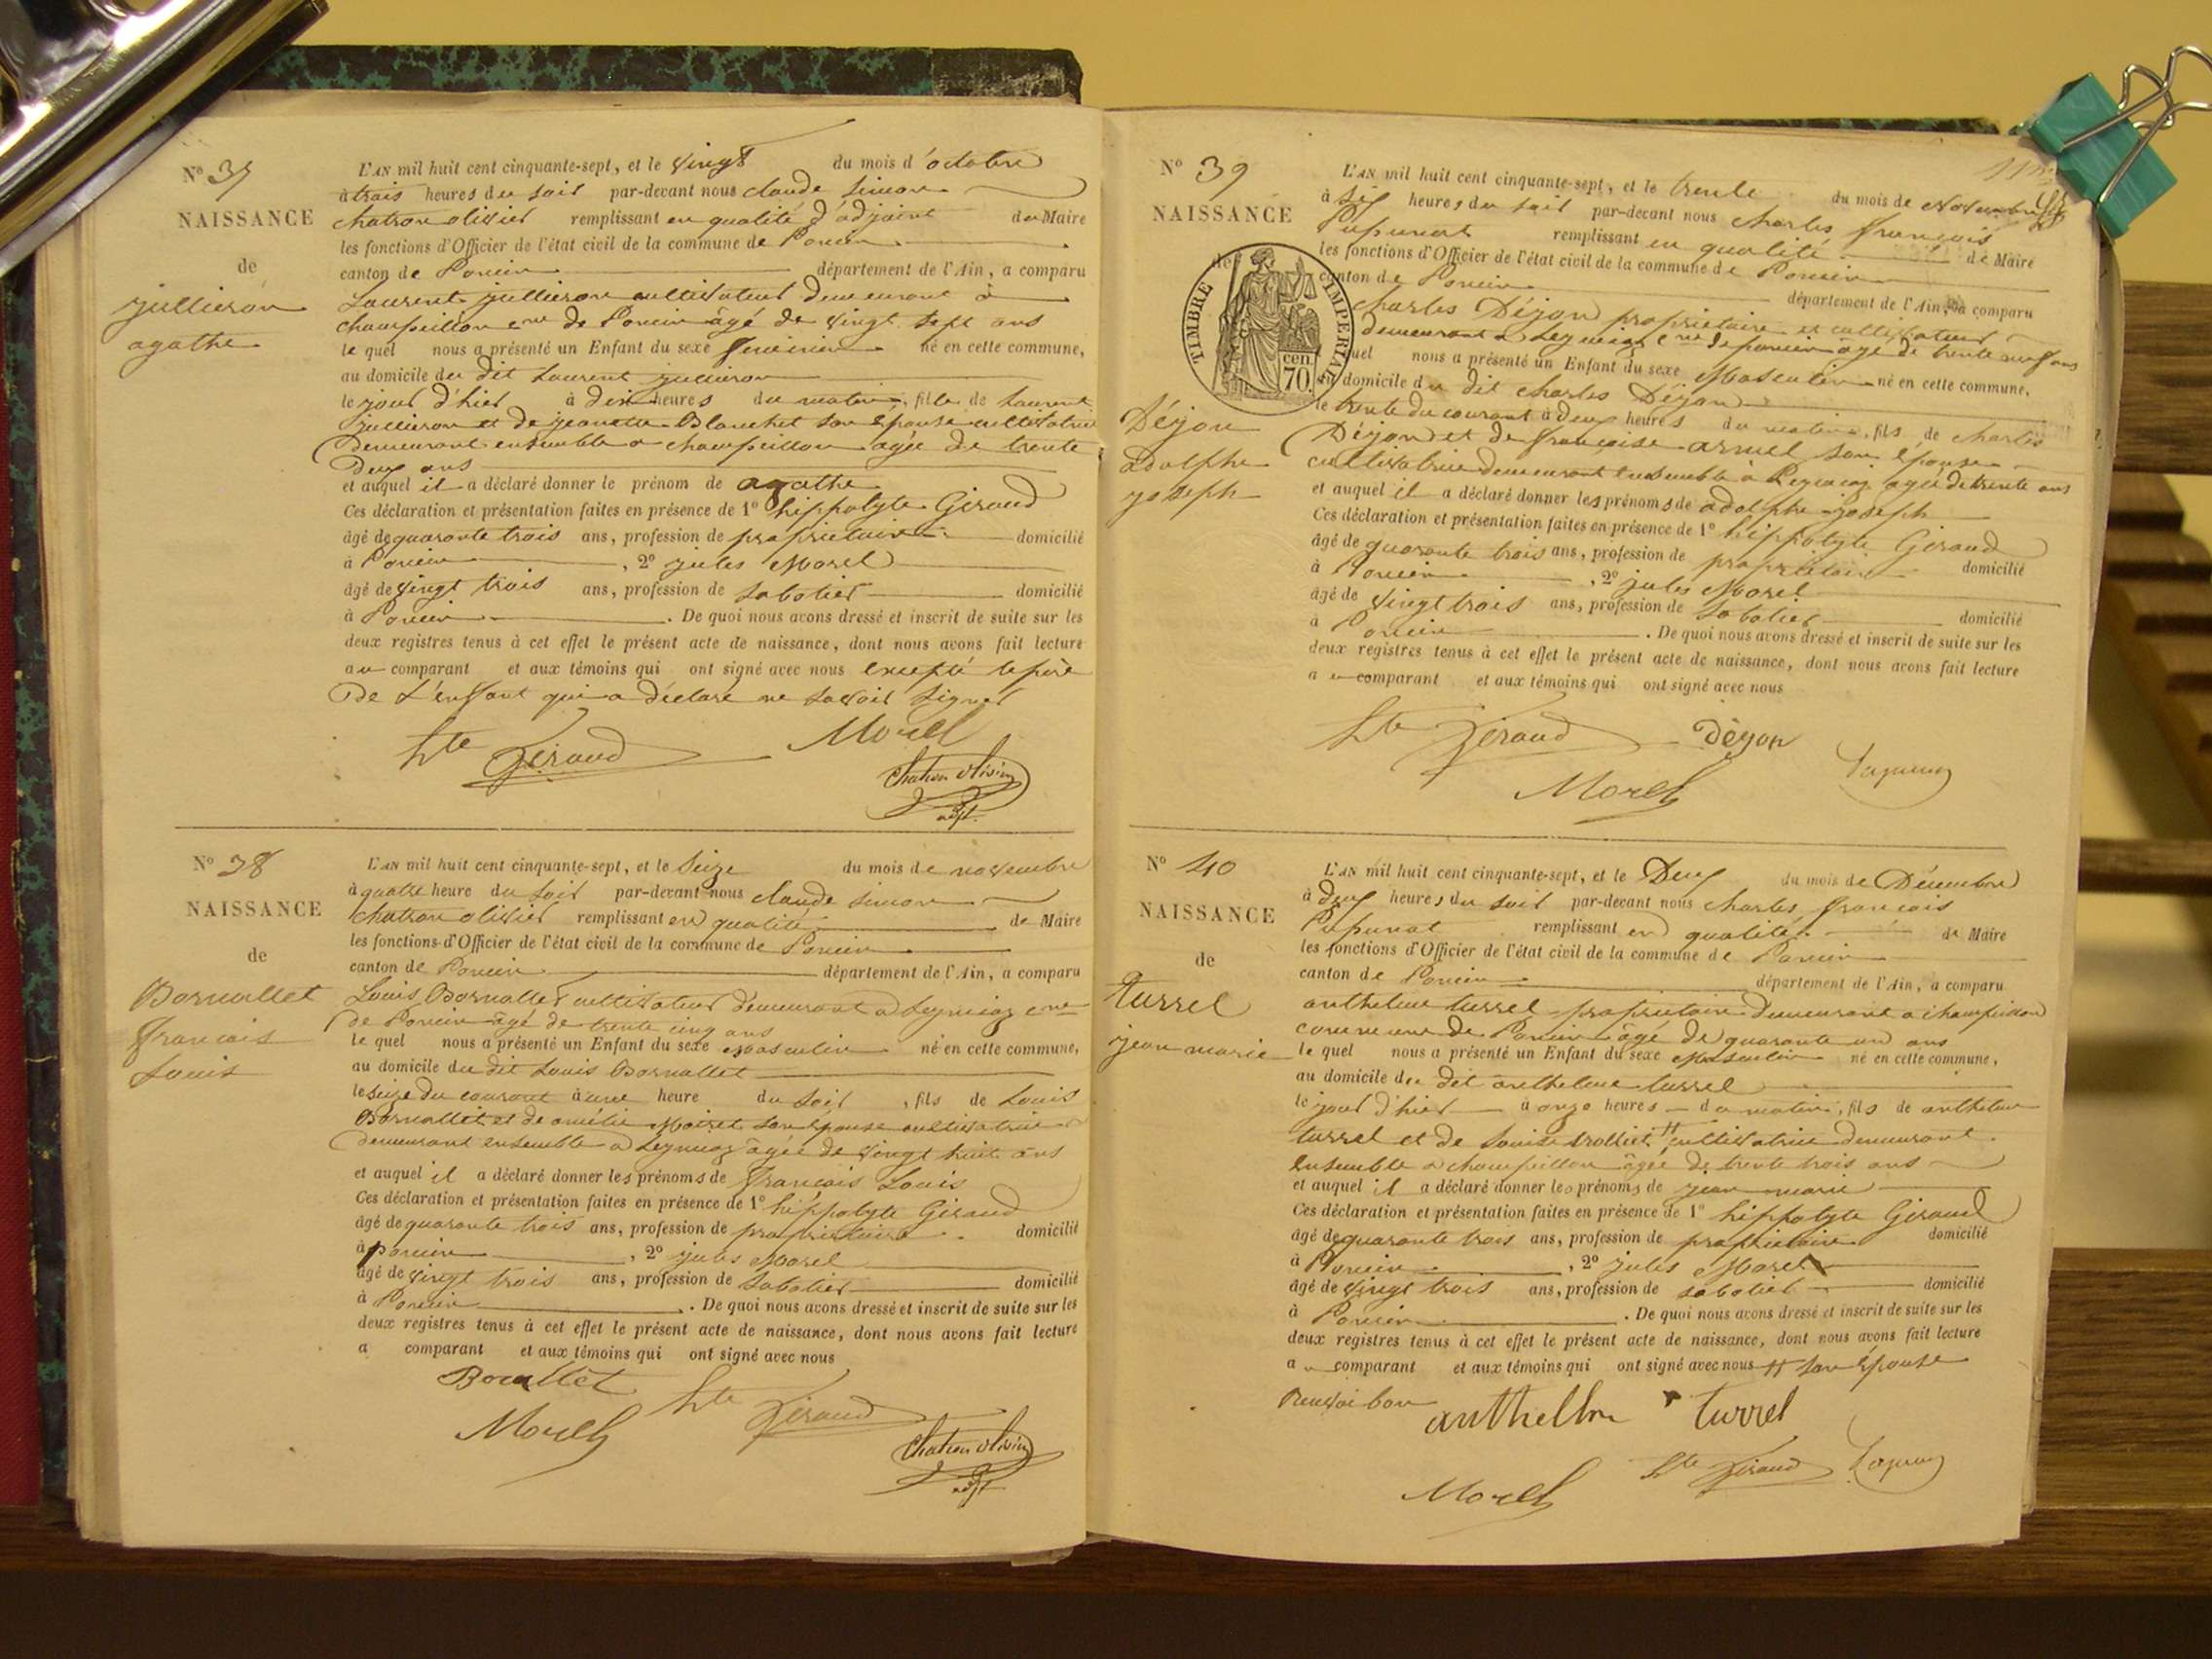 N° 37
NAISSANCE
de
jullieron
agathe
L'AN mil huit cent cinquante-sept, et le vingt du mois d'octobre
à trois heures du soir par-devant nous claude simon
chatron olivier remplissant en qualité d'adjoint du Maire
les fonctions d'Officier de l'état civil de la commune de Poncin
canton de Poncin département de l'Ain, a comparu
Laurent jullieron cultivateur demeurant à
champeillon cne de Poncin âgé de vingt sept ans
le quel nous a présenté un Enfant du sexe féminin né en cette commune,
au domicile du dit Laurent jullieron
le jour d'hier à dix heures du matin, fille de Laurent
jullieron et de jeanette Blanchet son épouse cultivatrice
demeurant ensemble a champeillon agée de trente
deux ans
et auquel il a déclaré donner le prénom de agathe
Ces déclaration et présentation faites en présence de 1° hippolyte Giraud
âgé de quarante trois ans, profession de propriétaire domicilié
à Poncin, 2° jules Morel
âgé de vingt trois ans, profession de sabotier domicilié
à Poncin. De quoi nous avons dressé et inscrit de suite sur les
deux registres tenus à cet effet le présent acte de naissance, dont nous avons fait lecture
au comparant et aux témoins qui ont signé avec nous excepté le père
de l'enfant qui a déclaré ne savoir signer
hte Giraud Morel
Chatron olivier
adjt.
N° 38
NAISSANCE
de
Bornallet
francois
Louis
L'AN mil huit cent cinquante-sept, et le Seize du mois de novembre
à quatre heure du soir par-devant nous claude simon
chatron olivier remplissant en qualité de Maire
les fonctions d'Officier de l'état civil de la commune de Poncin
canton de Poncin département de l'Ain, a comparu
Louis Bornallet cultivateur demeurant a Leymiaz cne
de Poncin âgé de trente cinq ans
le quel nous a présenté un Enfant du sexe Masculin né en cette commune,
au domicile du dit Louis Bornallet
le seize du courant à une heure du soir, fils de Louis
Bornallet et de amélie Moiret son épouse cultivatrice
demeurant ensemble a Leymiaz âgée de vingt huit ans
et auquel il a déclaré donner les prénoms de francois Louis
Ces déclaration et présentation faites en présence de 1° hippolyte Giraud
âgé de quarante trois ans, profession de propriétaire domicilié
à poncin, 2° jules Morel
âgé de vingt trois ans, profession de sabotier domicilié
à Poncin. De quoi nous avons dressé et inscrit de suite sur les
deux registres tenus à cet effet le présent acte de naissance, dont nous avons fait lecture
a comparant et aux témoins qui ont signé avec nous
Bornallet hte Giraud
Morel
Chatron olivier
adjt
N° 39
NAISSANCE
de
TIMBRE IMPERIAL
cen. 70.
Déjon
adolphe
joseph
L'AN mil huit cent cinquante-sept, et le trente du mois de Novembre
à six heures du soir par-devant nous charles françois
Pupunat remplissant en qualité de Maire
les fonctions d'Officier de l'état civil de la commune de Poncin
canton de Poncin département de l'Ain, a comparu
charles Déjon propriétaire et cultivateur
demeurant a Leymiaz cne de poncin âgé de trente neuf ans
quel nous a présenté un Enfant du sexe Masculin né en cette commune,
au domicile du dit charles Déjon
le trente du courant à deux heures du matin, fils de charles
Déjon et de francoise armel son épouse
cultivatrice demeurant ensemble a Leymiaz agée de trente ans
et auquel il a déclaré donner les prénoms de adolphe joseph
Ces déclaration et présentation faites en présence de 1° hippolyte Giraud
âgé de quarante trois ans, profession de propriétaire domicilié
à Poncin, 2° jules Morel
âgé de vingt trois ans, profession de sabotier domicilié
à Poncin. De quoi nous avons dressé et inscrit de suite sur les
deux registres tenus à cet effet le présent acte de naissance, dont nous avons fait lecture
au comparant et aux témoins qui ont signé avec nous
hte Giraud Déjon
Morel
N° 40
NAISSANCE
de
turrel
jean marie
L'AN mil huit cent cinquante-sept, et le Deux du mois de Décembre
à deux heures du soir par-devant nous charles françois
Pupunat remplissant en qualité de Maire
les fonctions d'Officier de l'état civil de la commune de Poncin
canton de Poncin département de l'Ain, a comparu
anthelme turrel propriétaire demeurant a champeillon
commune de Poncin âgé de quarante un ans
le quel nous a présenté un Enfant du sexe Masculin né en cette commune,
au domicile du dit anthelme turrel
le jour d'hier à onze heures du matin, fils de anthelme
turrel et de Louise trolliet # cultivatrice demeurant
ensemble a champeillon âgée de trente trois ans
et auquel il a déclaré donner les prénoms de jean marie
Ces déclaration et présentation faites en présence de 1° hippolyte Giraud
âgé de quarante trois ans, profession de propriétaire domicilié
à Poncin, 2° jules Morel
âgé de vingt trois ans, profession de sabotier domicilié
à Poncin. De quoi nous avons dressé et inscrit de suite sur les
deux registres tenus à cet effet le présent acte de naissance, dont nous avons fait lecture
au comparant et aux témoins qui ont signé avec nous # son épouse
Renvoi bon
anthelme turrel
Morel hte Giraud